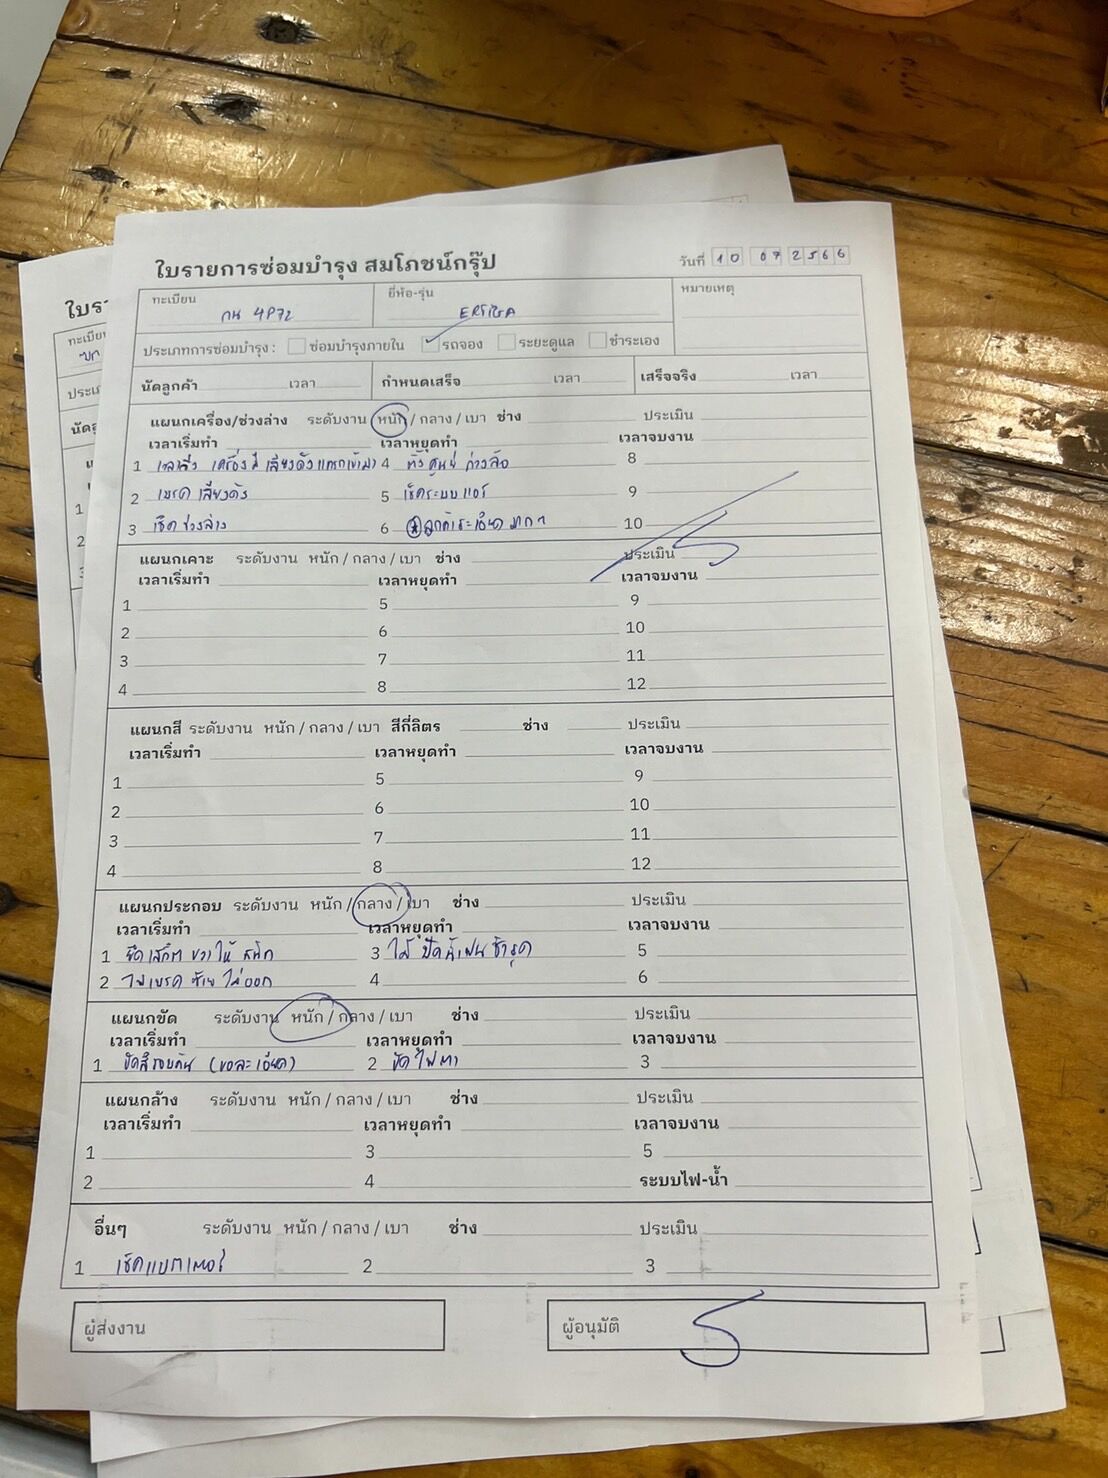 ใบรายการซ่อมบำรุง สมโภชน์กรุ๊ป
วันที่ 10 07 2566
ทะเบียน กน 4972 ยี่ห้อ-รุ่น ERTIGA หมายเหตุ
ประเภทการซ่อมบำรุง : ซ่อมบำรุงภายใน รถจอง ระยะดูแล ชำระเอง
นัดลูกค้า เวลา กำหนดเสร็จ เวลา เสร็จจริง เวลา
แผนกเครื่อง/ช่วงล่าง ระดับงาน หนัก / กลาง / เบา ช่าง ประเมิน
เวลาเริ่มทำ เวลาหยุดทำ เวลาจบงาน
1 เครื่องมีเสียงดัง 4 ตั้งศูนย์ ถ่วงล้อ 8
2 เบรคเสียงดัง 5 เช็คระบบแอร์ 9
3 เช็คช่วงล่าง 6 ลูกค้าละเอียดมากๆ 10
แผนกเคาะ ระดับงาน หนัก / กลาง / เบา ช่าง ประเมิน
เวลาเริ่มทำ เวลาหยุดทำ เวลาจบงาน
1 5 9
2 6 10
3 7 11
4 8 12
แผนกสี ระดับงาน หนัก / กลาง / เบา สีกี่ลิตร ช่าง ประเมิน
เวลาเริ่มทำ เวลาหยุดทำ เวลาจบงาน
1 5 9
2 6 10
3 7 11
4 8 12
แผนกประกอบ ระดับงาน หนัก / กลาง / เบา ช่าง ประเมิน
เวลาเริ่มทำ เวลาหยุดทำ เวลาจบงาน
1 ยึดสเกิตขวาให้สนิท 3 ใบปัดน้ำฝนชำรุด 5
2 ไฟเบรคซ้ายไม่ออก 4 6
แผนกขัด ระดับงาน หนัก / กลาง / เบา ช่าง ประเมิน
เวลาเริ่มทำ เวลาหยุดทำ เวลาจบงาน
1 ขัดสีรอบคัน (ขอละเอียด) 2 ขัดไฟตา 3
แผนกล้าง ระดับงาน หนัก / กลาง / เบา ช่าง ประเมิน
เวลาเริ่มทำ เวลาหยุดทำ เวลาจบงาน
1 3 5
2 4 ระบบไฟ-น้ำ
อื่นๆ ระดับงาน หนัก / กลาง / เบา ช่าง ประเมิน
1 เช็คแบตเตอรี่ 2 3
ผู้ส่งงาน ผู้อนุมัติ